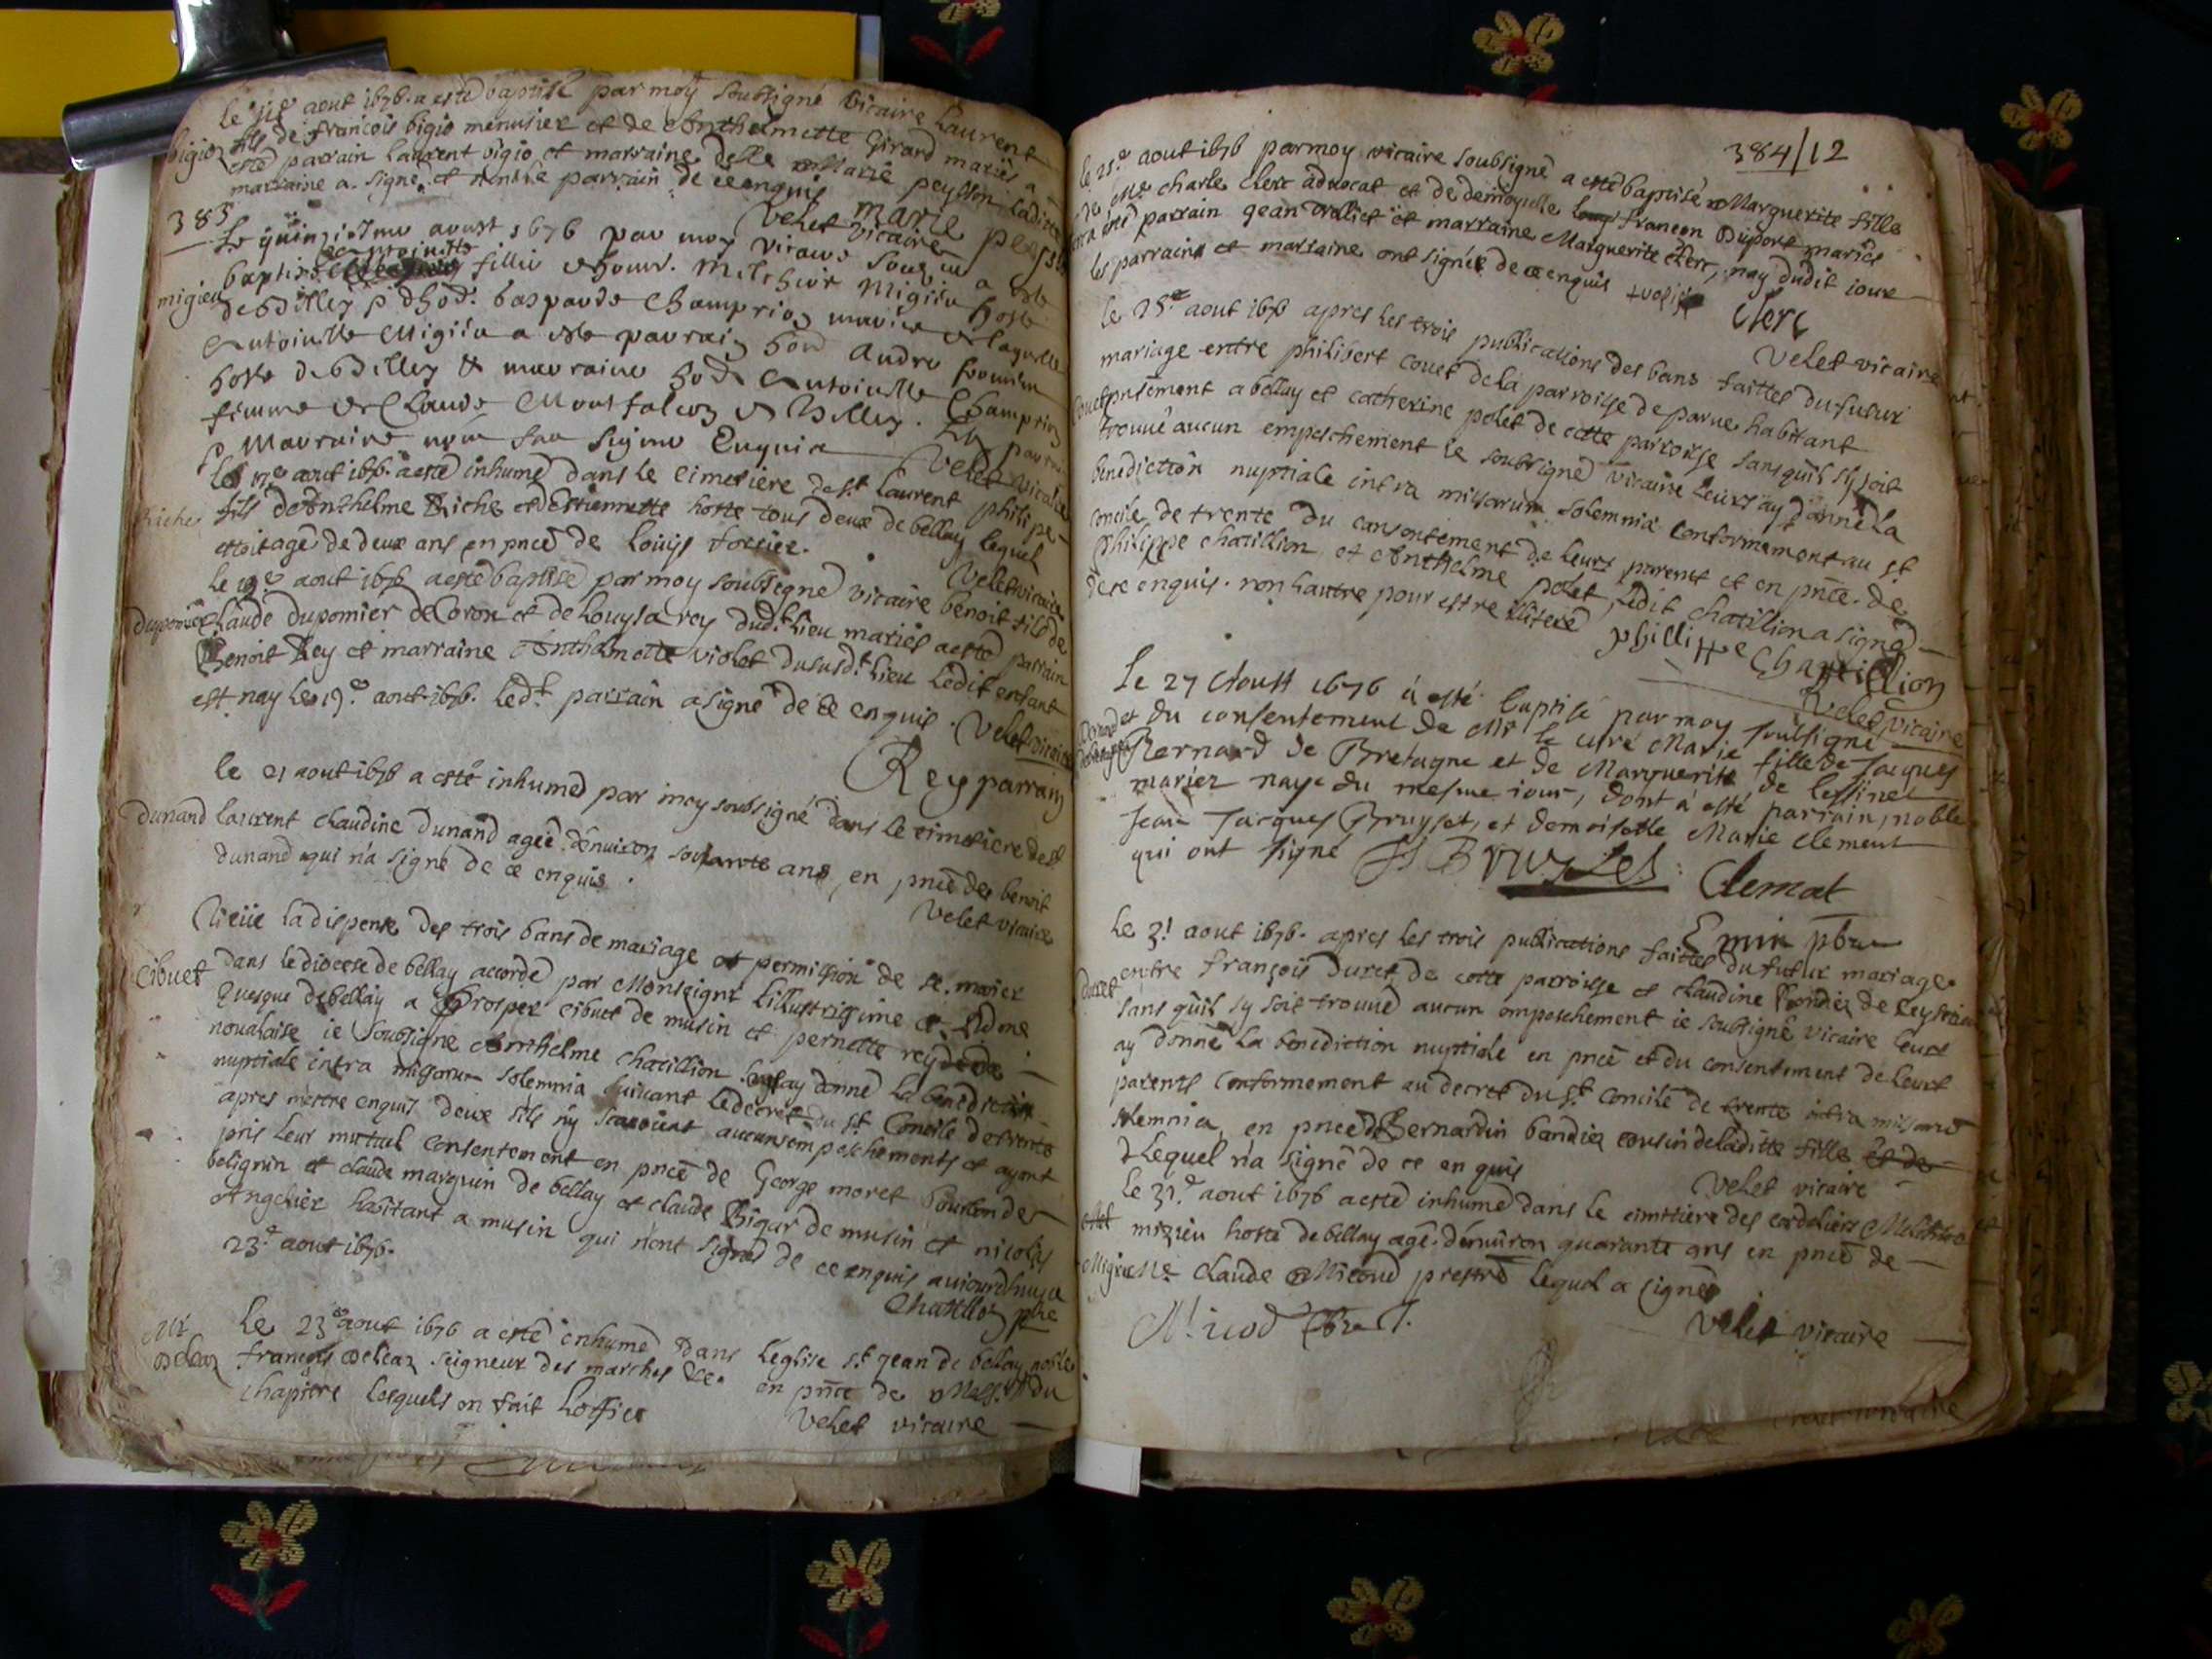 le aout 1676 a esté baptisé par moy soubsigné vicaire Laurent
bigio fils de francois bigio menusier et de Anthelmette Girard mariés a
esté parrain laurent bigio et marraine delle Marie peysson ladite
marraine a signé et non le parrain de ce enquis
Velet vicaire marie
383
Le quinziesme aoust 1676 par moy vicaire a esté
baptisé Anthoinette fillie Melchior Migieu hoste
migieu
Antoinette Migieu a esté parrain André
hoste de Billey & marraine Antoinette Champrion
femme de Claude Montfalcon
Marraine signé Enquis Velet vicaire
le aout 1676 a esté inhumé dans le cimetiere de st Laurent philipe
Riche fils de Anthelme Riche et de Estiennette hoste tous deux de bellay lequel
estoit agé de deux ans en pnce de Louys
Velet vicaire
le 19e aout 1676 a esté baptisé par moy soubsigné vicaire benoit fils de
dupomier Claude dupomier de Coron et de Louysa rey dudt lieu mariés a esté parrain
Benoit Rey et marraine Anthelmette violet du susdt lieu Ledit enfant
est nay le 19e aout 1676. Ledt parrain a signé de ce enquis. Velet vicaire
Rey parrain
le 21 aout 1676 a esté inhumé par moy soubsigné dans le cimetiere de st
dunand laurent claudine dunand agée denuiron soixante ans, en pnce de benoit
dunand qui n'a signé de ce enquis.
Velet vicaire
Veüe la dispense des trois bans de mariage et permission de se marier
cibuet dans le diocese de bellay accordé par Monseignr Lillustrissime et Rdme
Euesque de bellay a Prosper cibuet de musin et pernette rey de
noualaise ie soubsigné Anthelme chatillion leur ay donné la benediction
nuptiale intra missarum solemnia suiuant le decret du st Concile de trente
apres mestre enquis deux sils ny scauoint aucuns empeschements et ayant
pris leur mutuel consentement en pnce de George moret
belignin et claude marquin de bellay et claude Bigar de musin et nicolas
Angelier habitant a musin qui n'ont signé de ce enquis auiourdhuy
23e aout 1676.
Chatillon pbre
Le 23e aout 1676 a esté inhumé dans leglise st Jean de bellay noble
Mr delcaz francois delcaz seigneur des marches &c. en pnce de Messrs du
chapitre lesquels on fait Loffice
Velet vicaire
384/12
le 25e aout 1676 par moy vicaire soubsigné a esté baptisé Marguerite fille
de Mre charle Clerc aduocat et de demoyselle francon Duport mariés
a esté parrain gean et marraine Marguerite Clerc, nay dudit iour
les parrains et marraine ont signés de ce enquis
Clerc
Velet vicaire
Le 25e aout 1676 apres les trois publications des bans faittes du futur
mariage entre philibert couet de la parroisse de parue habitant
couet presentement a bellay et catherine polet de cette parroisse sans quil sy soit
trouué aucun empeschement ie soubsigné vicaire leurs ay donné La
benediction nuptiale intra missarum solemnia conformement au st
concile de trente du cansontement de leurs parents et en pnce de
Philippe chatillion et Anthelme polet, ledit chatillion a signé
de ce enquis. non lautre pour estre illiteré
phillippe Chattillion
Velet vicaire
Le 27 Aoust 1676 à esté baptisé par moy soussigné
et du consentement de Mr le curé Marie fille de Jacques
Bernard de Bretagne et de Marguerite de lessinet
mariez naye du mesme iour, dont à esté parrain, noble
Jean Jacques Bruysset, et demoiselle Marie Clement
qui ont signé JJ Bruysset Clemat
Emin pbre
Le 31 aout 1676. apres les trois publications faittes du futur mariage
Duret entre françois Duret de cette parroisse et claudine Bandier de Ceyserieu
sans quil sy soit trouué aucun empeschement ie soubsigné vicaire leurs
ay donné La benediction nuptiale en pnce et du consentement de leurs
parents conformement au decret du st Concile de trente intra missarum
solemnia, en pnce de Bernardin bandier cousin de laditte fille et de
Lequel n'a signé de ce enquis
Velet vicaire
le 31e aout 1676 a esté inhumé dans le cimetiere des cordeliers Melchior
migieu hoste de bellay agé denuiron quarante ans en pnce de
Migieu Mre Claude Micoud prestre Lequel a signé
Micod Pbre
Velet vicaire